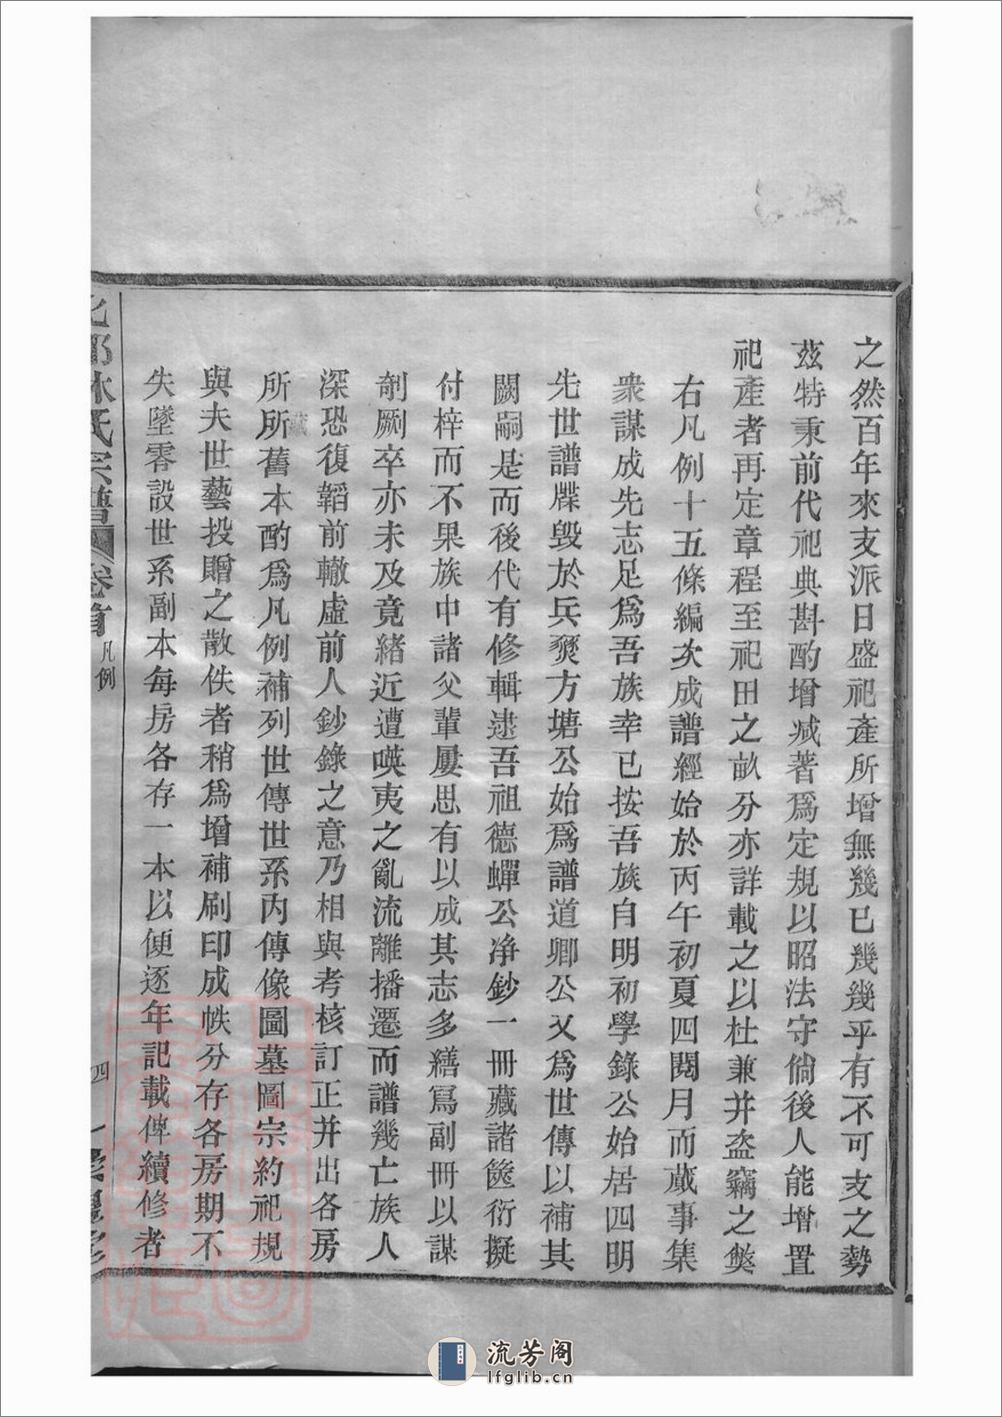 之然百年來支派日盛祀產所增無幾已幾幾乎有不可支之勢
茲特秉前代祀典斟酌增减著爲定規以昭法守倘後人能增置
祀產者再定章程至祀田之畝分亦詳載之以杜兼并盜竊之獘
右凡例十五條編次成譜經始於丙午初夏四閱月而蕆事集
衆謀成先志足爲吾族幸已按吾族自明初學錄公始居四明
先世譜牒毀於兵燹方塘公始爲譜道卿公又爲世傳以補其
闕嗣是而後代有修輯逮吾祖德蟬公净鈔一冊藏諸篋衍擬
付梓而不果族中諸父輩屢思有以成其志多繕寫副冊以謀
剞劂卒亦未及竟緒近遭㗲夷之亂流離播遷而譜幾亡族人
深恐復韜前轍虛前人鈔錄之意乃相與考核訂正并出各房
所所舊本酌爲凡例補列世傳世系丙傳像圖墓圖宗約祀規
藏
與夫世藝投贈之散佚者稍爲增補刷印成帙分存各房期不
失墜零設世系副本每房各存一本以便逐年記載俾續修者
林氏宗譜
卷首
凡例
四
流芳阁
lfglib.cn